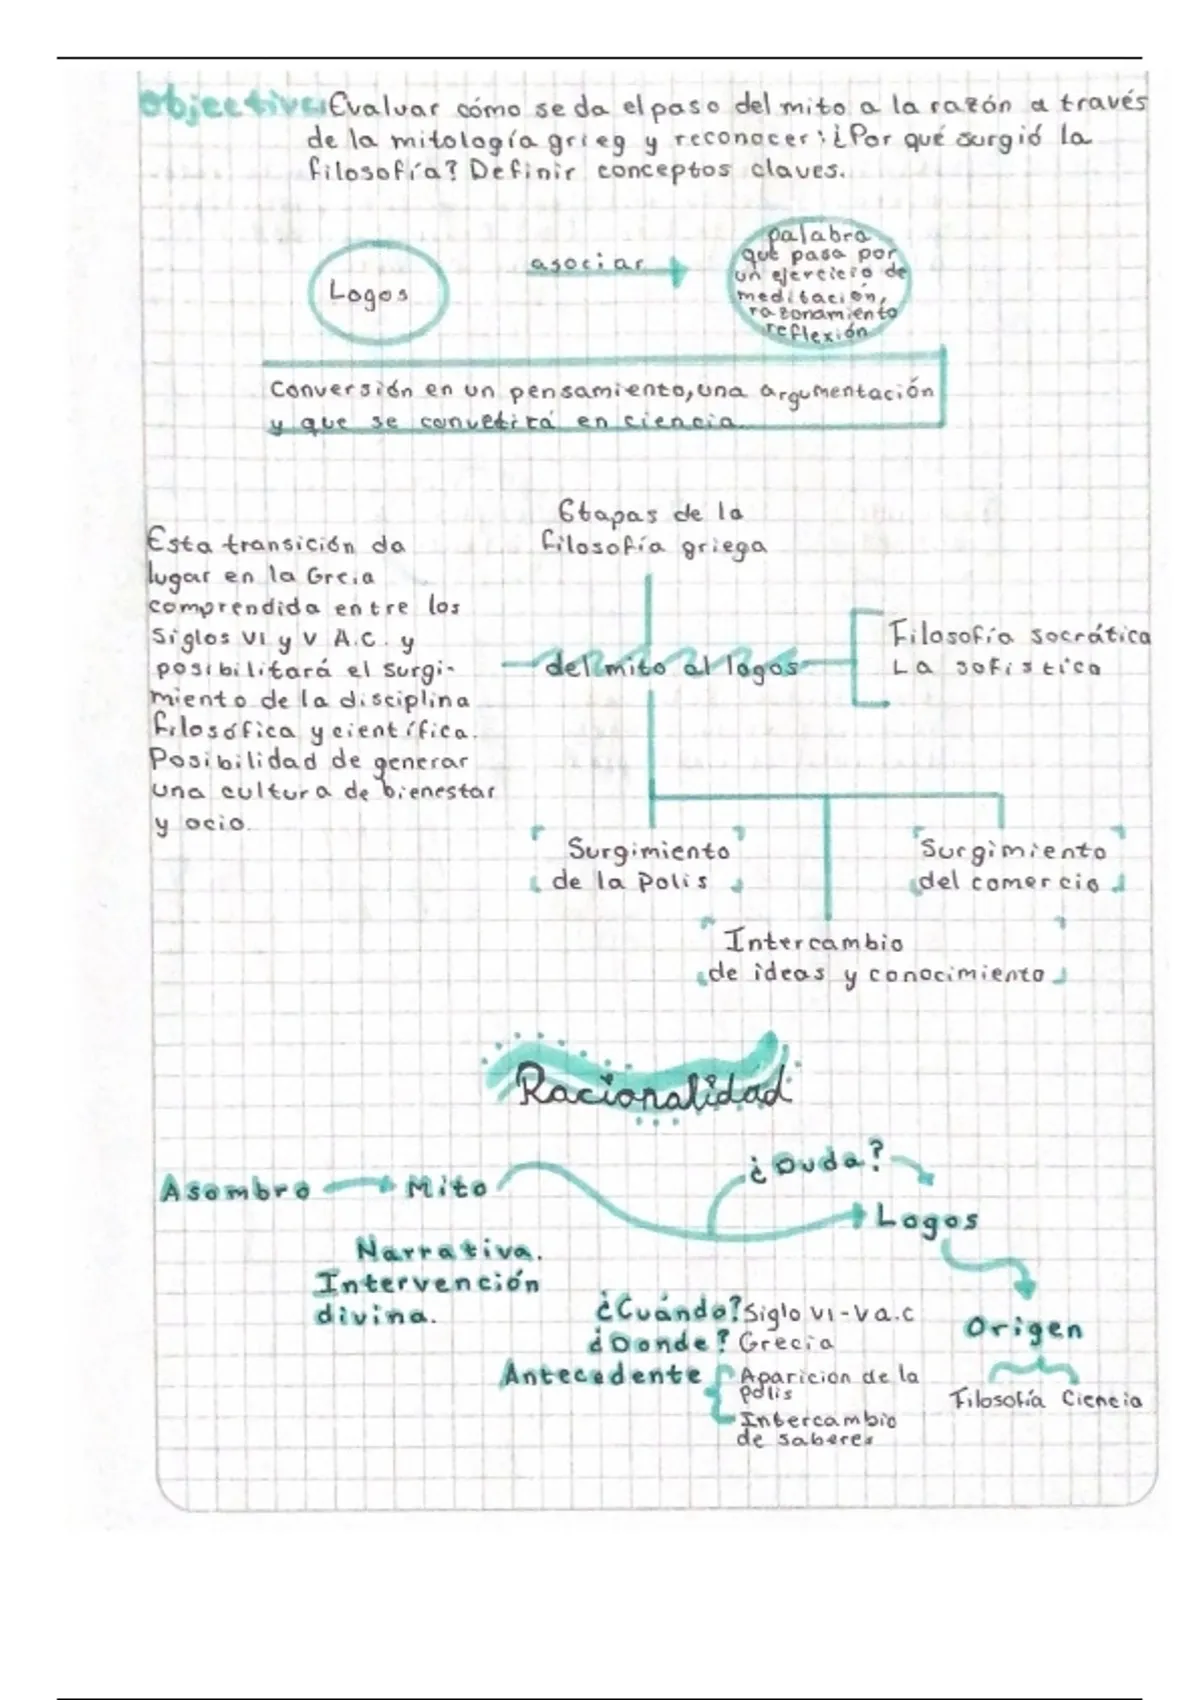 Objective: Evaluar cómo se da el paso del mito a la razón a través
de la mitología grieg y reconocer: ¿Por qué surgió la
filosofía? Definir conceptos claves.
Logos
asociar
palabra
que pasa por
un ejercicio de
meditación,
razonamiento
reflexión
Conversión en un pensamiento, una argumentación
y que se convertirá en ciencia.
Esta transición da
lugar en la Grcia
comprendida entre los
Siglos VI y V A.C. y
posibilitará el surgi-
miento de la disciplina
filosófica y científica.
Posibilidad de generar
una cultura de bienestar
y ocio.
Etapas de la
filosofía griega
del mito al logos
Filosofía socrática
La sofistica
Surgimiento
de la Polis
Surgimiento
del comercio
Intercambio
de ideas y conocimiento
Racionalidad
Asombro
Mito
¿Duda?
Logos
Narrativa.
Intervención
divina.
¿Cuándo? Siglo VI-V a.c
¿Donde? Grecia
Antecedente
Aparicion de la
polis
Intercambio
de saberes
Origen
Filosofía Ciencia